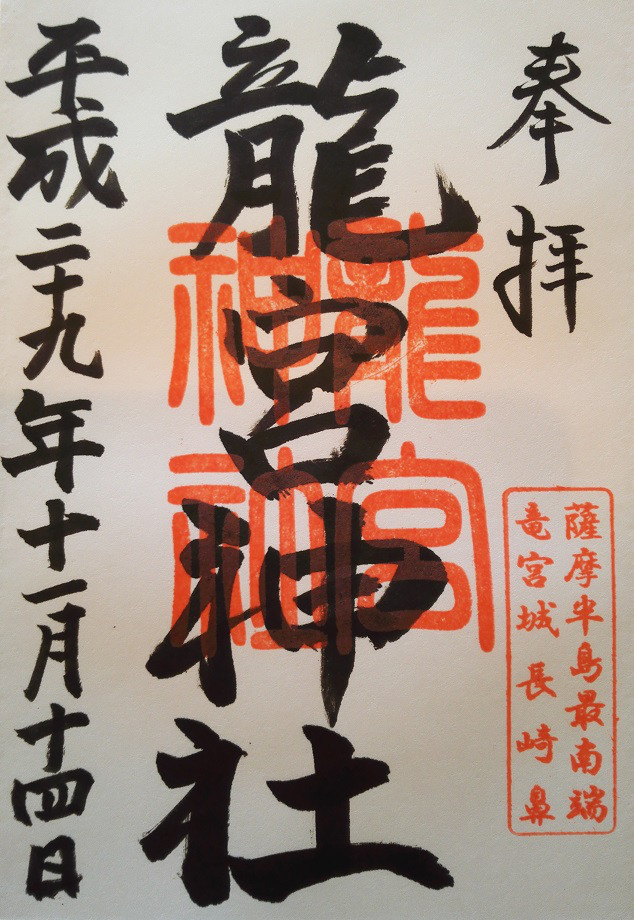 奉拝
薩摩半島最南端
竜宮城長崎鼻
龍宮神社
龍宮
神社
平成二十九年十一月十四日